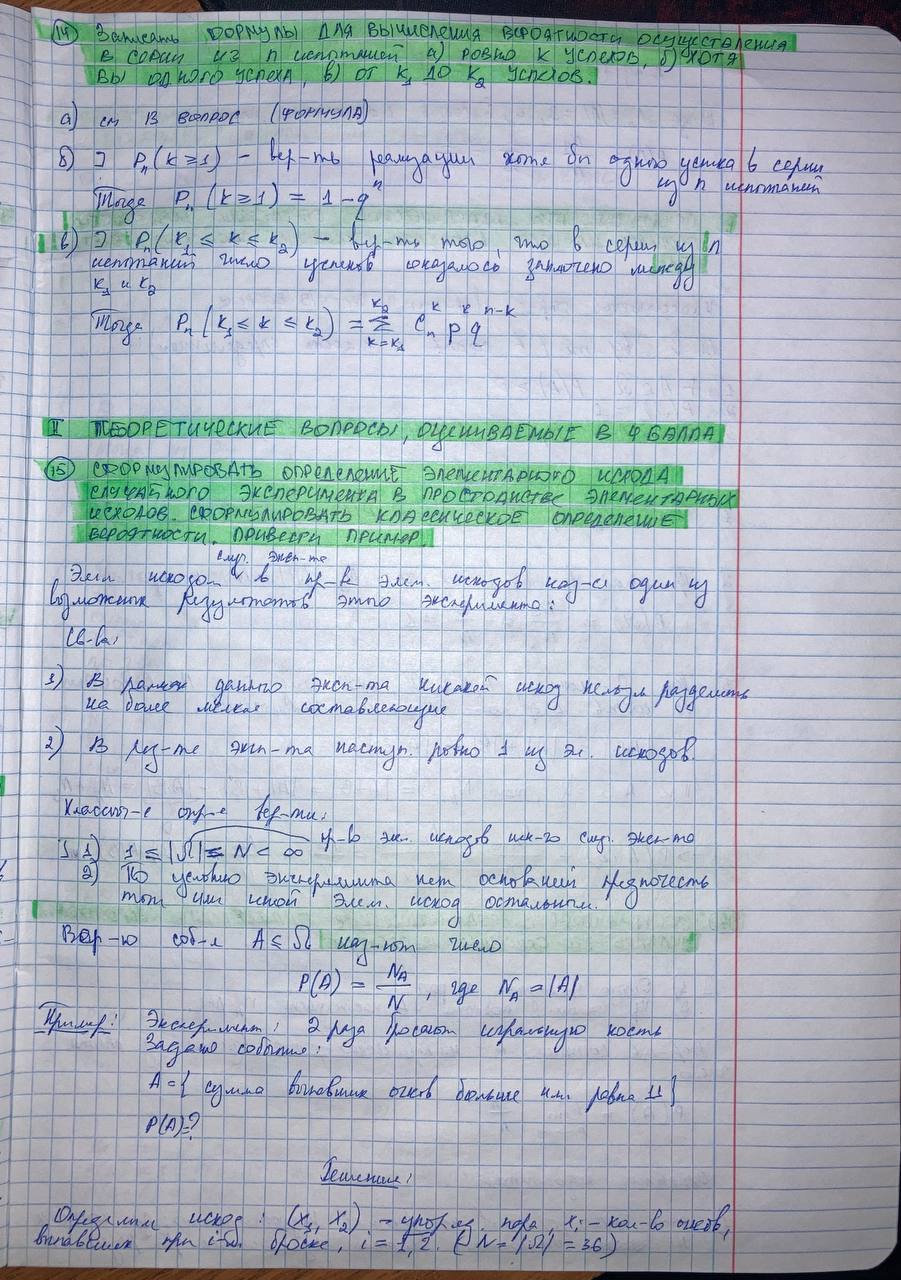 14 Записать формулы для вычисления вероятности осуществления
в серии из n испытаний а) ровно k успехов, б) хотя
бы одного успеха, в) от k₁ до k₂ успехов.
а) см 13 вопрос (формула)
б) ] Pₙ(k ≥ 1) – вер-ть реализации хотя бы одного успеха в серии
из n испытаний
Тогда Pₙ (k ≥ 1) = 1 - qⁿ
в) ] Pₙ(k₁ ≤ k ≤ k₂) – вер-ть того, что в серии из n
испытаний число успехов оказалось заключено между
k₁ и k₂
Тогда Pₙ (k₁ ≤ k ≤ k₂) = Σ_{k=k₁}^{k₂} Cₙᵏ pᵏ qⁿ⁻ᵏ
II Теоретические вопросы, оцениваемые в 4 балла
15 Сформулировать определение элементарного исхода
случайного эксперимента в простанстве элементарных
исходов. Сформулировать классическое определение
вероятности. Привести пример.
слуг. экск-та
Элем исходом в пр-ве элем. исходов наз-ся один из
возможных результатов этого эксперимента:
Св-ва:
1) В рамках данного эксп-та никакой исход нельзя разделить
на более мелкие составляющие
2) В рез-те эксп-та наступ. ровно 1 из эл. исходов.
Классич-е опр-е вер-ти:
] 1) 1 ≤ |Ω| = N < ∞ пр-во эл. исходов нек-го случ. эксп-та
2) По условию эксперимента нет оснований предпочесть
тот или иной элем. исход остальным.
Вер-ю соб-я A ⊆ Ω наз-ют число
P(A) = N_A / N , где N_A = |A|
Пример: Эксперимент: 2 раза бросают игральную кость
Задано событие:
A = { сумма выпавших очков больше или равна 11 }
P(A)=?
Решение:
Определим исход: (x₁, x₂) – упоряд. пара, xᵢ – кол-во очков,
выпавших при i-ом броске, i = 1, 2. (⇒ N = |Ω| = 36)